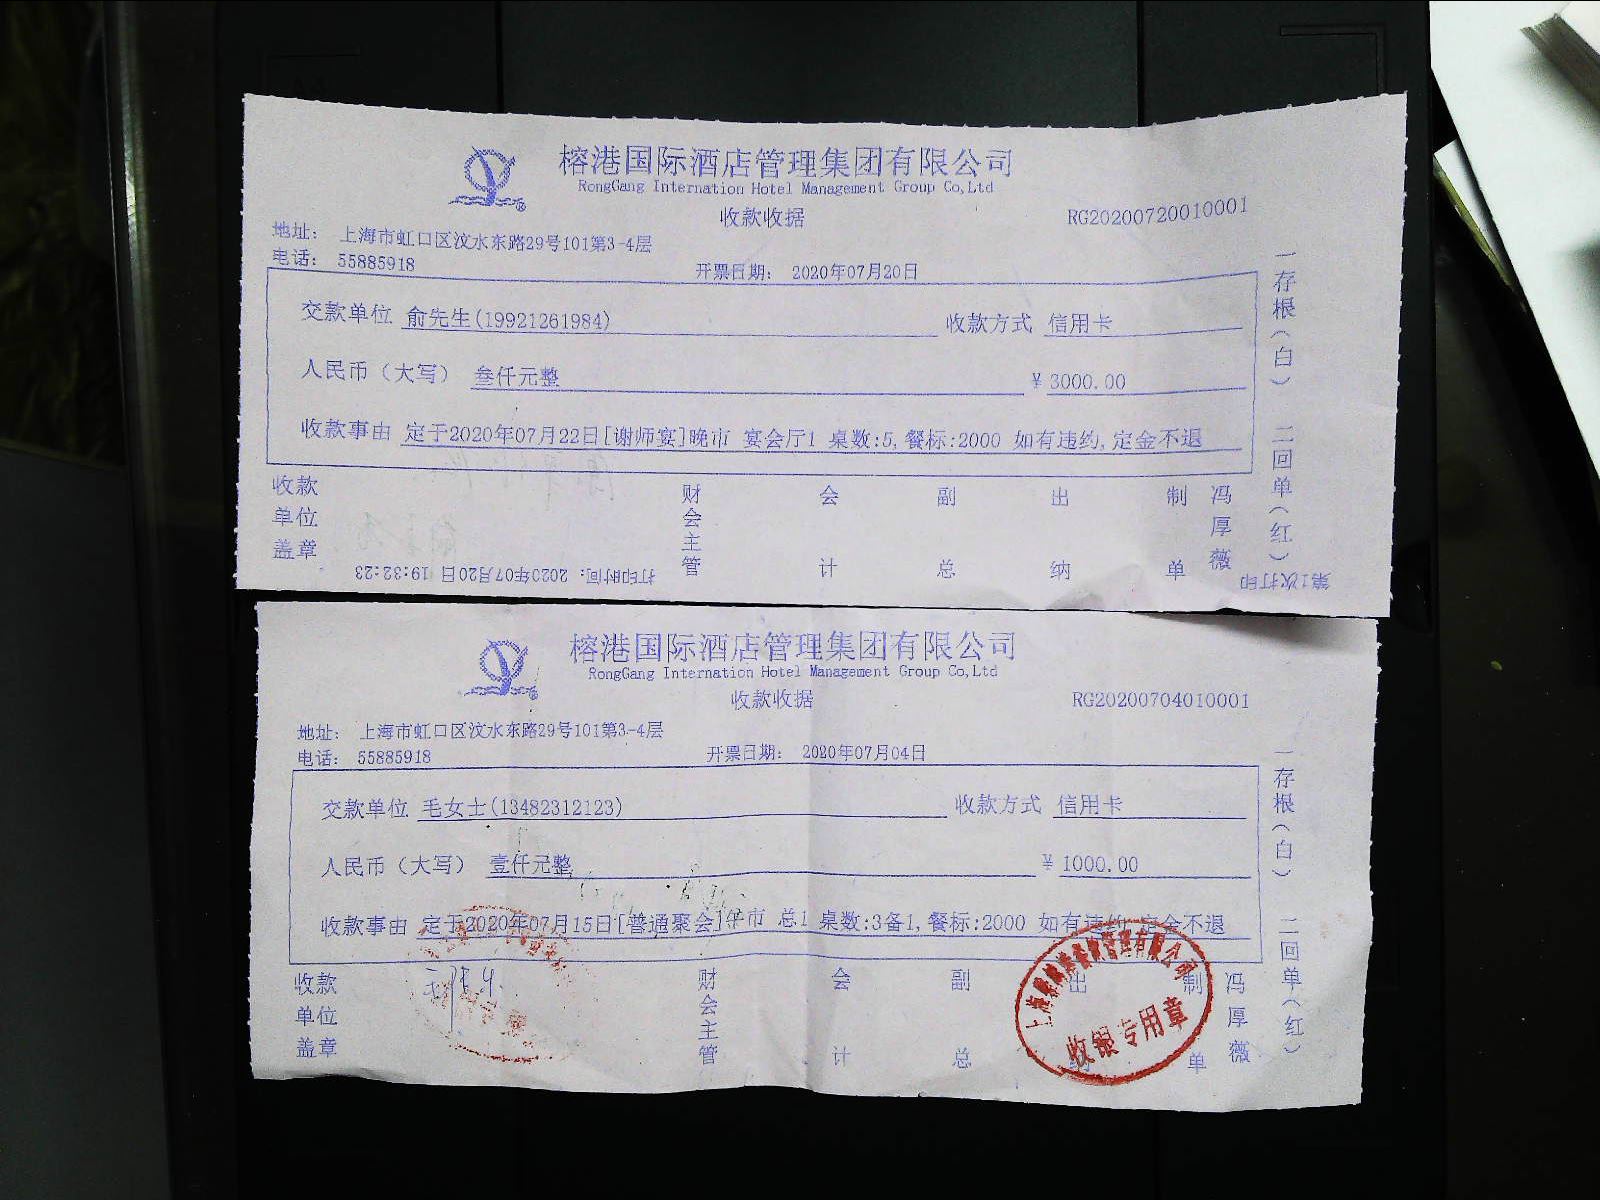 榕港国际酒店管理集团有限公司
RongGang Internation Hotel Management Group Co,Ltd
收款收据
RG20200720010001
地址： 上海市虹口区汶水东路29号101第3-4层
电话： 55885918
开票日期： 2020年07月20日
交款单位 俞先生(19921261984)
收款方式 信用卡
人民币（大写） 叁仟元整
¥ 3000.00
收款事由 定于2020年07月22日[谢师宴]晚市 宴会厅1 桌数:5,餐标:2000 如有违约,定金不退
收款单位盖章
财会主管
会计
副总
出纳
制单
冯厚薇
一存根（白） 二回单（红）
打印时间：2020年07月20日 19:32:23
第1次打印
榕港国际酒店管理集团有限公司
RongGang Internation Hotel Management Group Co,Ltd
收款收据
RG20200704010001
地址： 上海市虹口区汶水东路29号101第3-4层
电话： 55885918
开票日期： 2020年07月04日
交款单位 毛女士(13482312123)
收款方式 信用卡
人民币（大写） 壹仟元整
¥ 1000.00
收款事由 定于2020年07月15日[普通聚会]午市 总1 桌数:3备1,餐标:2000 如有违约,定金不退
收款单位盖章
财会主管
会计
副总
出纳
制单
冯厚薇
一存根（白） 二回单（红）
收银专用章